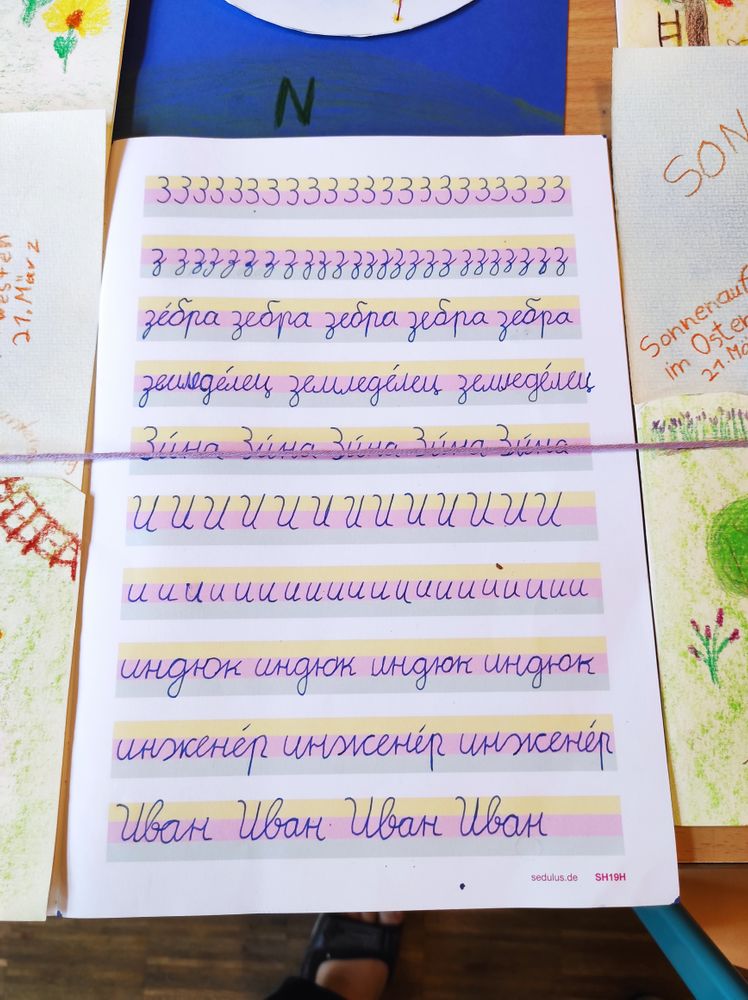 N
SON
З З З З З З З З З З З З З З З З З З З З З З
з з з з з з з з з з з з з з з з з з з з з з
зе́бра зебра зебра зебра зебра
земледе́лец земледе́лец земледе́лец
Зи́на Зи́на Зи́на Зи́на Зи́на
И И И И И И И И И И И И И
и и и и и и и и и и и и и и и и и и и и
индюк индюк индюк индюк
инжене́р инжене́р инжене́р
Иван Иван Иван Иван
sedulus.de SH19H
westen
21. März
Sonnenauf
im Osten
21. Mä